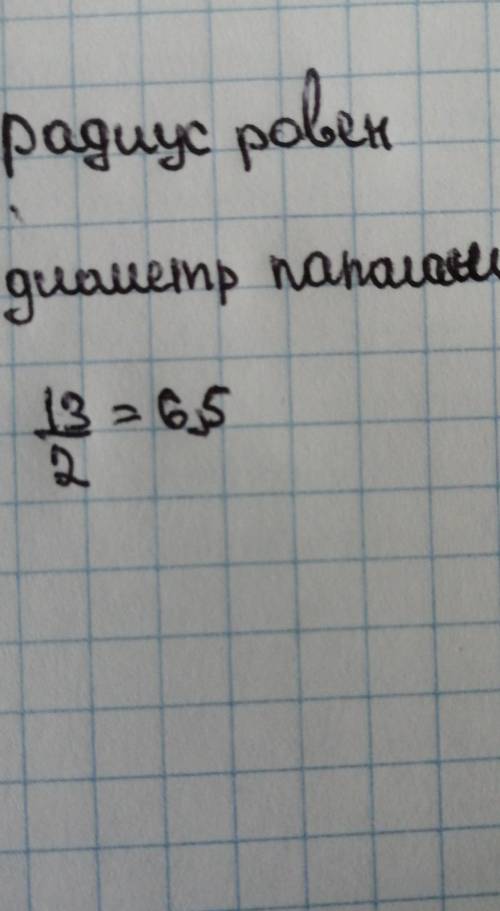 радиус ровен
диаметр папалам
13/2 = 6,5